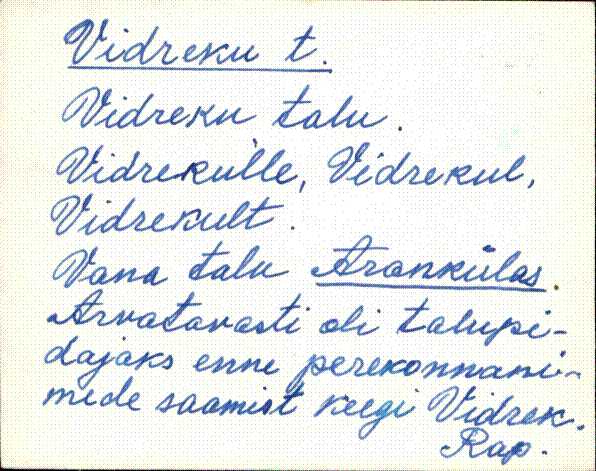 Vidreku t.
Vidreku talu.
Vidrekulle, Vidrekul,
Vidrekult.
Vana talu Arankülas.
Arvatavasti oli talupi-
dajaks enne perekonnani-
mede saamist keegi Vidrek.
Rap.